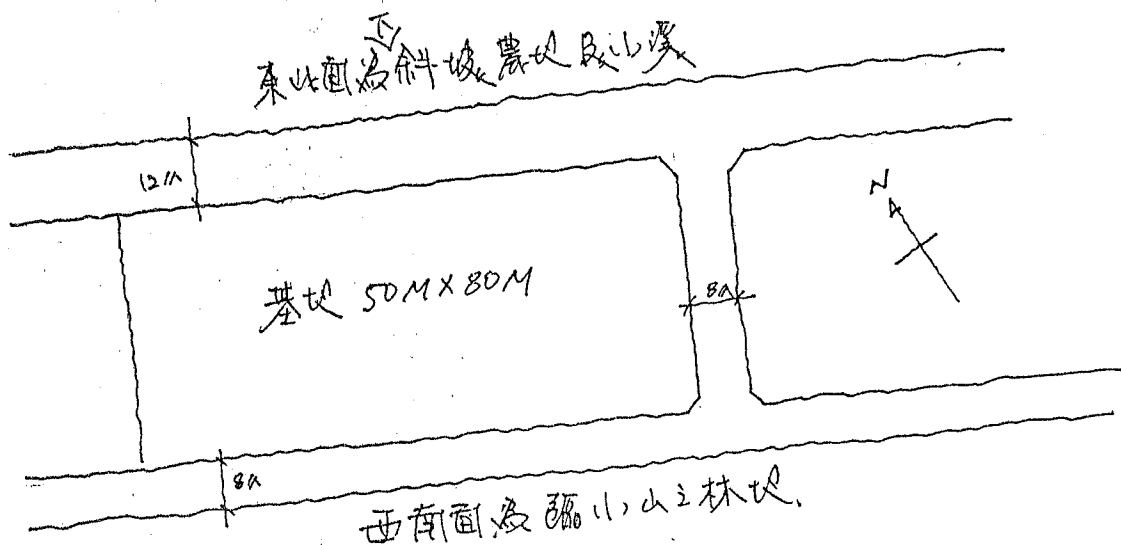 東北面為下斜坡農地及小溪
12M
N
基地 50M×80M
8M
8M
西南面為臨小山之林地.